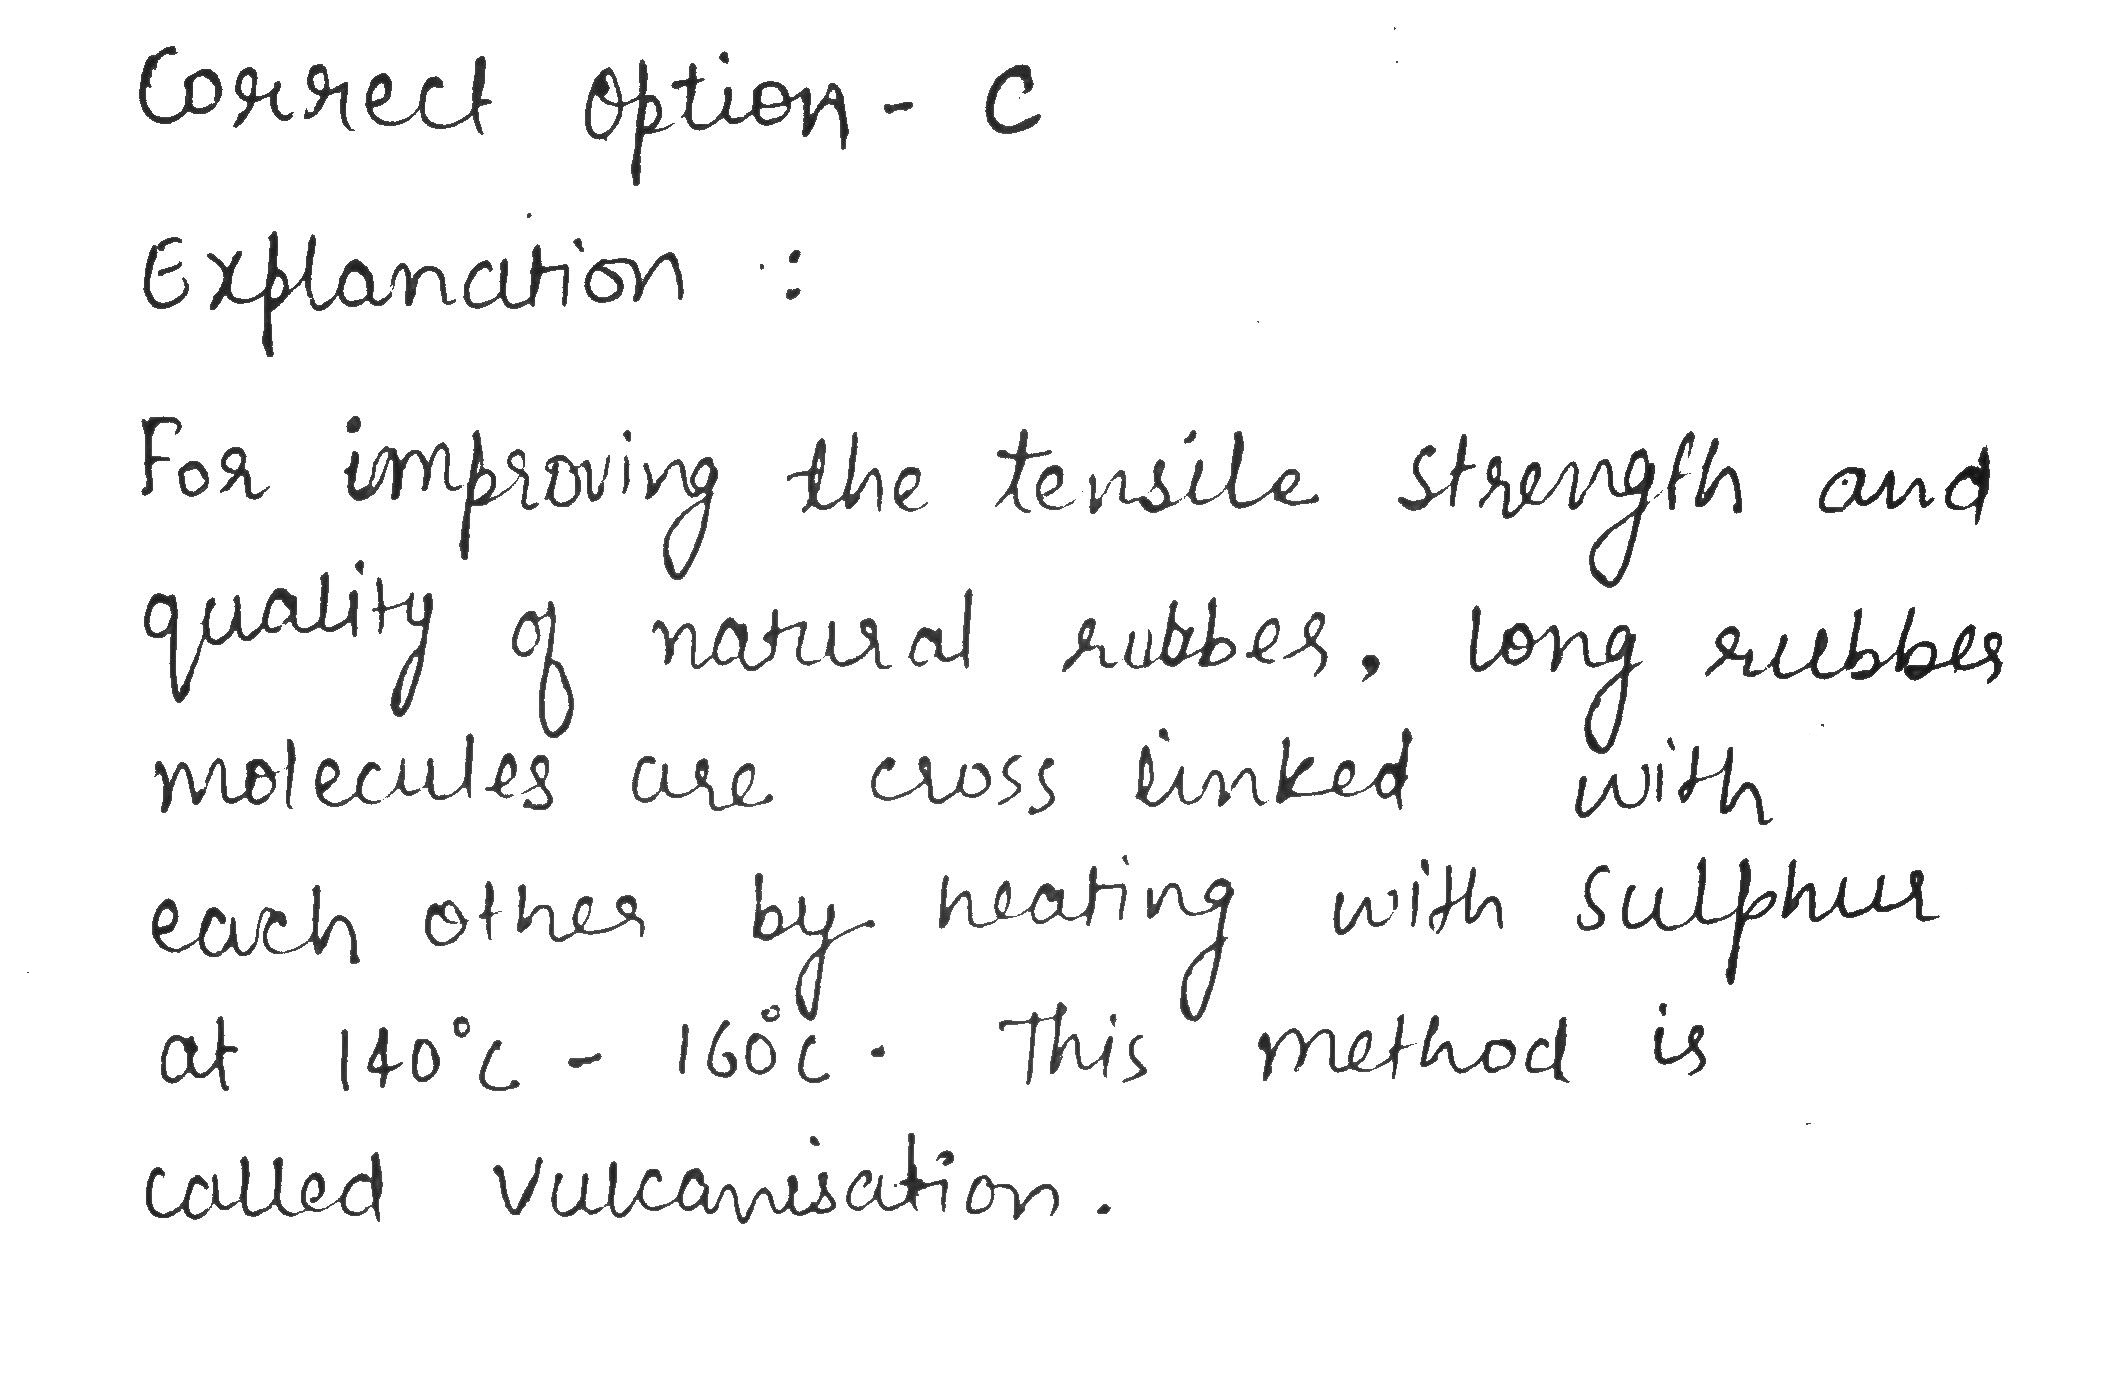 Correct option - C
Explanation :
For improving the tensile strength and
quality of natural rubber, long rubber
molecules are cross linked with
each other by heating with sulphur
at 140°C - 160°C. This method is
called vulcanisation.